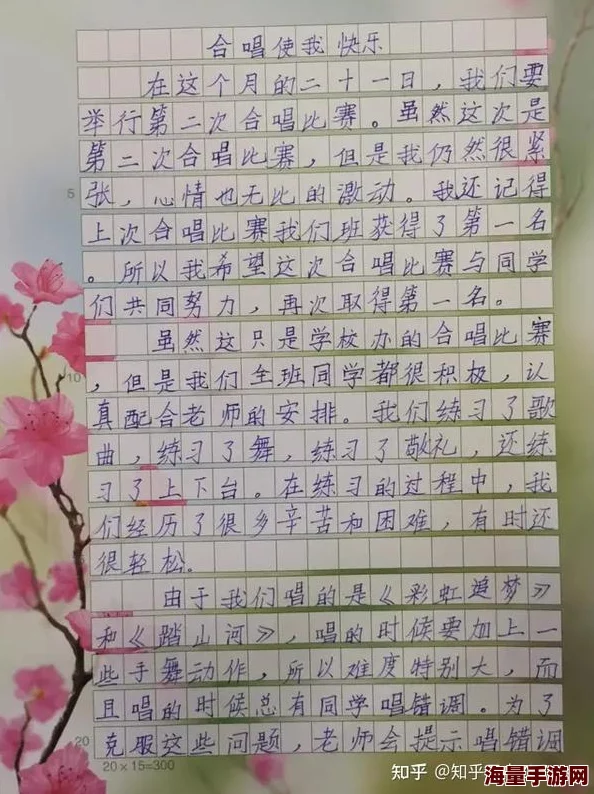 合唱使我快乐
在这个月的二十一日，我们要
举行第二次合唱比赛。虽然这次是
第二次合唱比赛，但是我仍然很紧
5
张，心情也无比的激动。我还记得
上次合唱比赛我们班获得了第一名
。所以我希望这次合唱比赛与同学
们共同努力，再次取得第一名。
虽然这只是学校办的合唱比赛
10
，但是我们全班同学都很积极，认
真配合老师的安排。我们练习了歌
曲，练习了舞，练习了敬礼，还练
习了上下台。在练习的过程中，我
们经历了很多辛苦和困难，有时还
很轻松。
由于我们唱的是《彩虹追梦》
和《踏山河》，唱的时候要加上一
些手舞动作，所以难度特别大，而
且唱的时候总有同学唱错调。为了
20
克服这些问题，老师会提示唱错调
20×15=300
知乎 @知乎
海量手游网